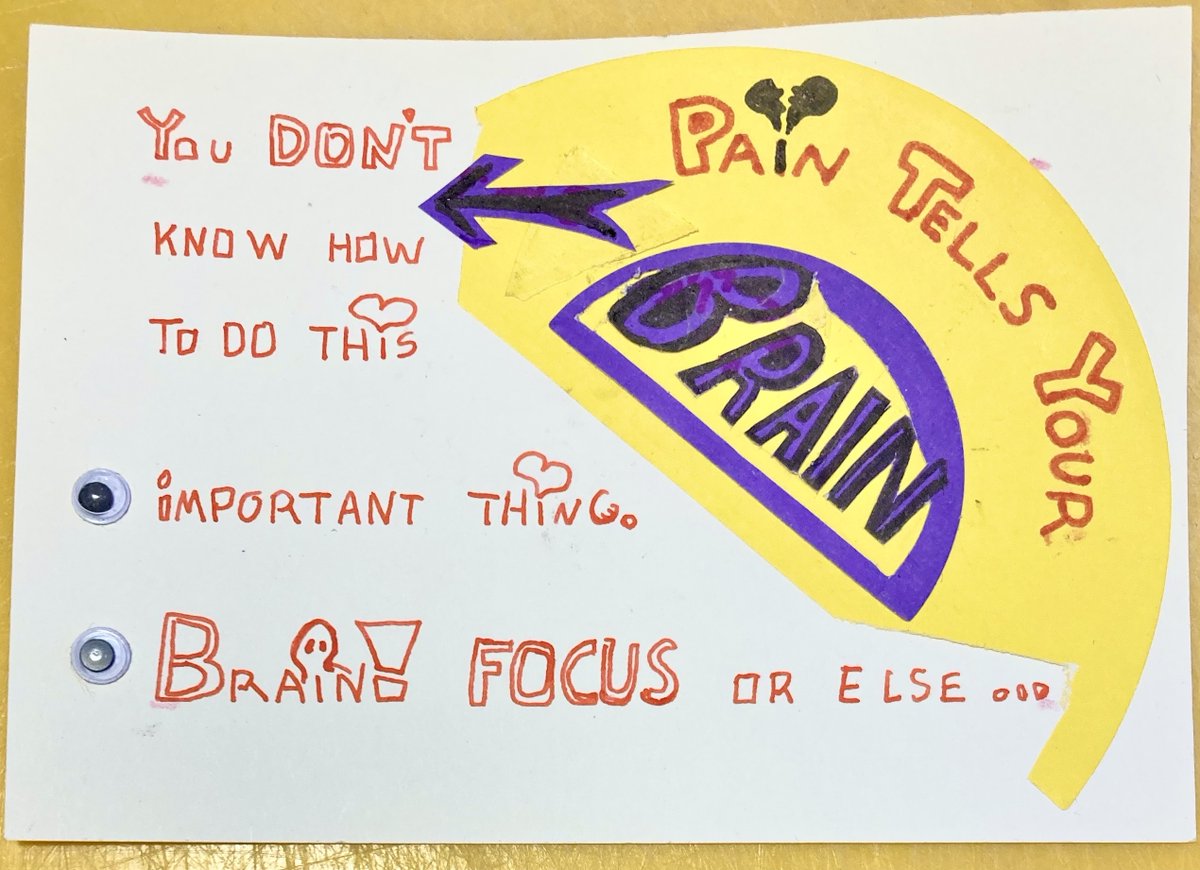 PAIN TELLS YOUR
BRAIN
YOU DON'T
KNOW HOW
TO DO THIS
IMPORTANT THING.
BRAIN! FOCUS OR ELSE ...